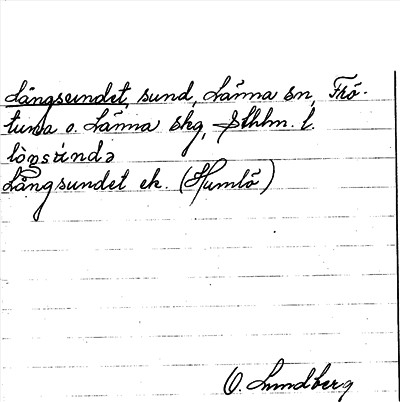 Långsundet, sund, Länna sn, Frö-
tuna o. Länna skg, Sthlm. l.
lòŋsúndə
Långsundet ek. (Humlö)
O. Lundberg